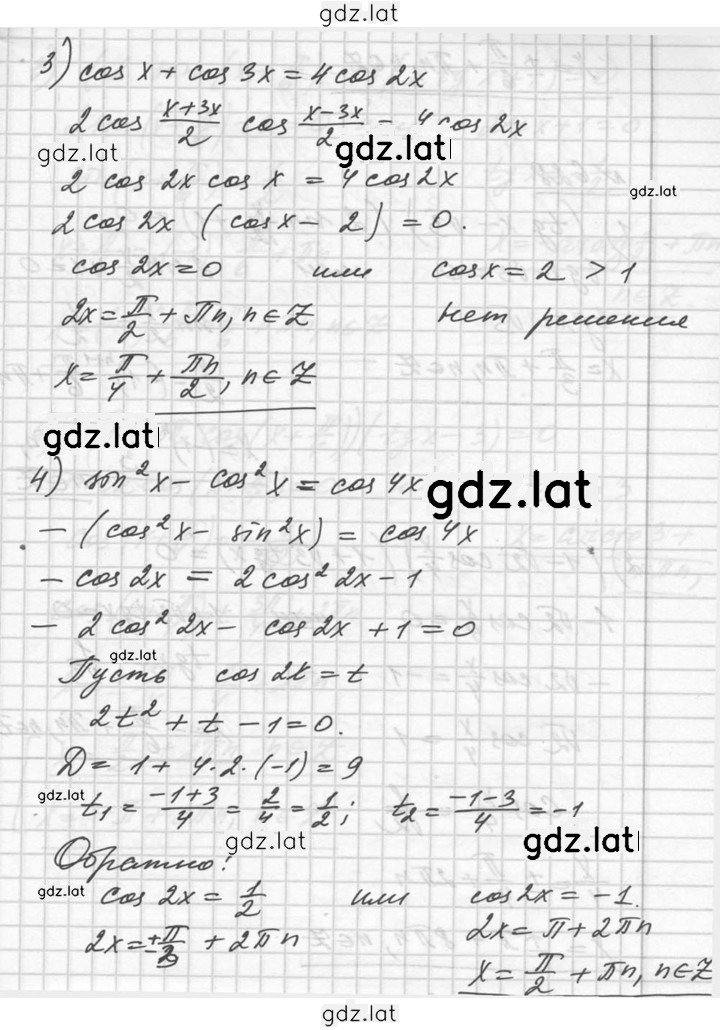 gdz.lat
3) cos x + cos 3x = 4 cos 2x
2 cos (x+3x)/2 cos (x−3x)/2 − 4 cos 2x
gdz.lat
gdz.lat
2 cos 2x cos x = 4 cos 2x
gdz.lat
2 cos 2x (cos x − 2) = 0.
cos 2x = 0 или cos x = 2 > 1
2x = π/2 + πn, n ∈ Z нет решения
x = π/4 + πn/2, n ∈ Z
gdz.lat
4) sin²x − cos²x = cos 4x
gdz.lat
− (cos²x − sin²x) = cos 4x
− cos 2x = 2 cos² 2x − 1
− 2 cos² 2x − cos 2x + 1 = 0
gdz.lat
Пусть cos 2x = t
2t² + t − 1 = 0.
D = 1 + 4·2·(−1) = 9
gdz.lat
t₁ = (−1+3)/4 = 2/4 = 1/2; t₂ = (−1−3)/4 = −1
gdz.lat
gdz.lat
Обратно:
gdz.lat
cos 2x = 1/2 или cos 2x = −1.
2x = ±π/3 + 2πn 2x = π + 2πn
x = π/2 + πn, n ∈ Z
gdz.lat